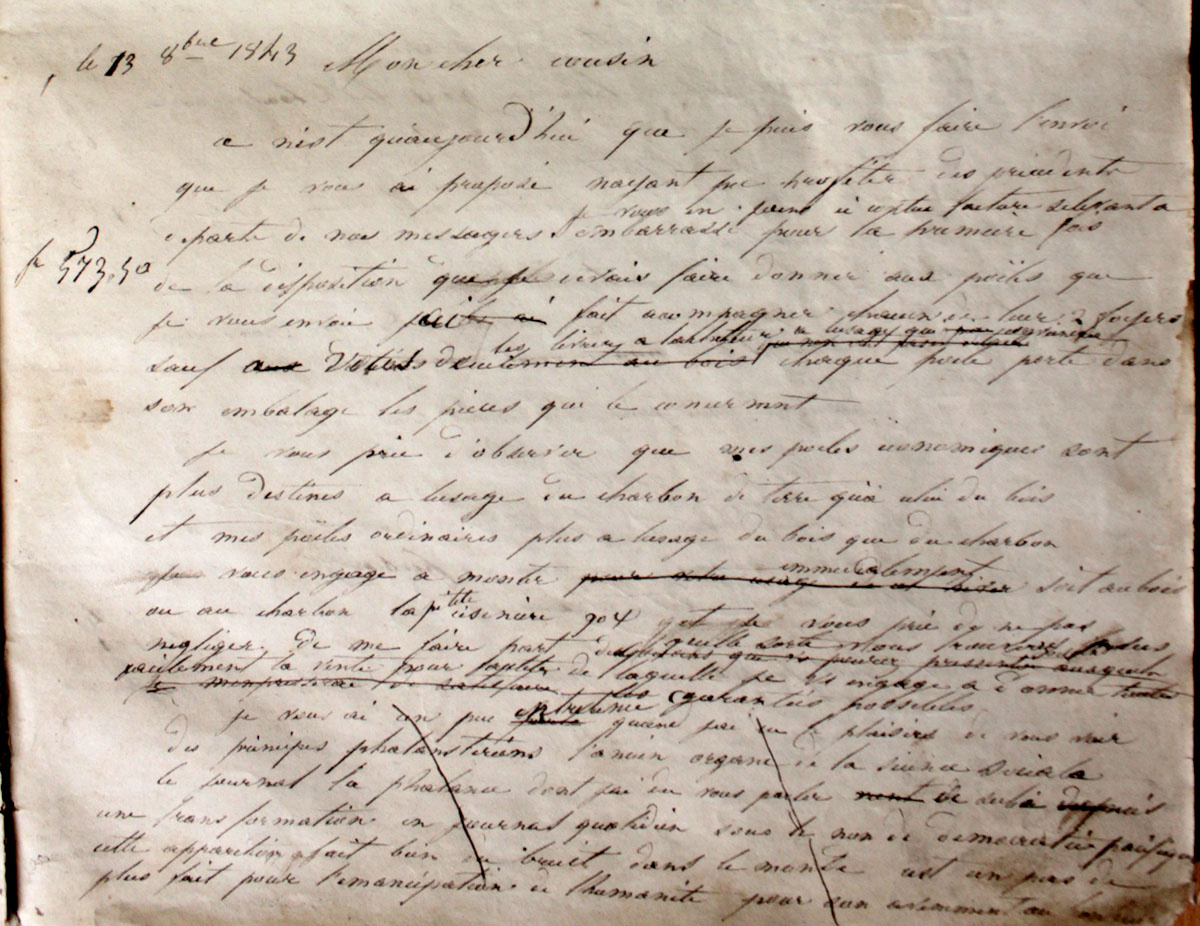 le 13 8bre 1843 Mon cher cousin
ce n'est qu'aujourd'hui que je puis vous faire l'envoi
que je vous ai proposé nayant pu profiter des précédents
je vous en joins ici copie facture selevant a
départs de nos messagers embarrassé pour la première fois
fr 573,50
de la disposition que je devais faire donner aux poëles que
je vous envoie fait accompagner chacun de leur 2 foyers
les livrer a lacheteur a lusage qui
sauf aux seulement au bois chaque poele porte dans
son embalage les pieces qui le concernent
je vous prie d'observer que mes poeles économiques sont
plus destinés a lusage du charbon de terre qu'a celui du bois
et mes poëles ordinaires plus a lusage du bois que du charbon
immédiatement
je vous engage a monter pour votre usage soit au bois
ou au charbon la ptite cuisinière no 4 et je vous prie de ne pas
negliger de me faire part de quelle sorte vous trouverez
facilement la vente pour lapetite de laquelle je m'engage a donner toutes
les garanties possibles
je vous ai un peu entretenu quand j'ai eu le plaisirs de vous voir
des principes phalanstériens l'ancien organe de la science sociale
le journal la phalange dont j'ai du vous parler vient de subir depuis
une transformation en journal quotidien sous le nom de democratie pacifique
cette apparition fait bien du bruit dans le monde cest un pas de
plus fait pour l'emancipation de l'humanité pour son acheminement au bonheur